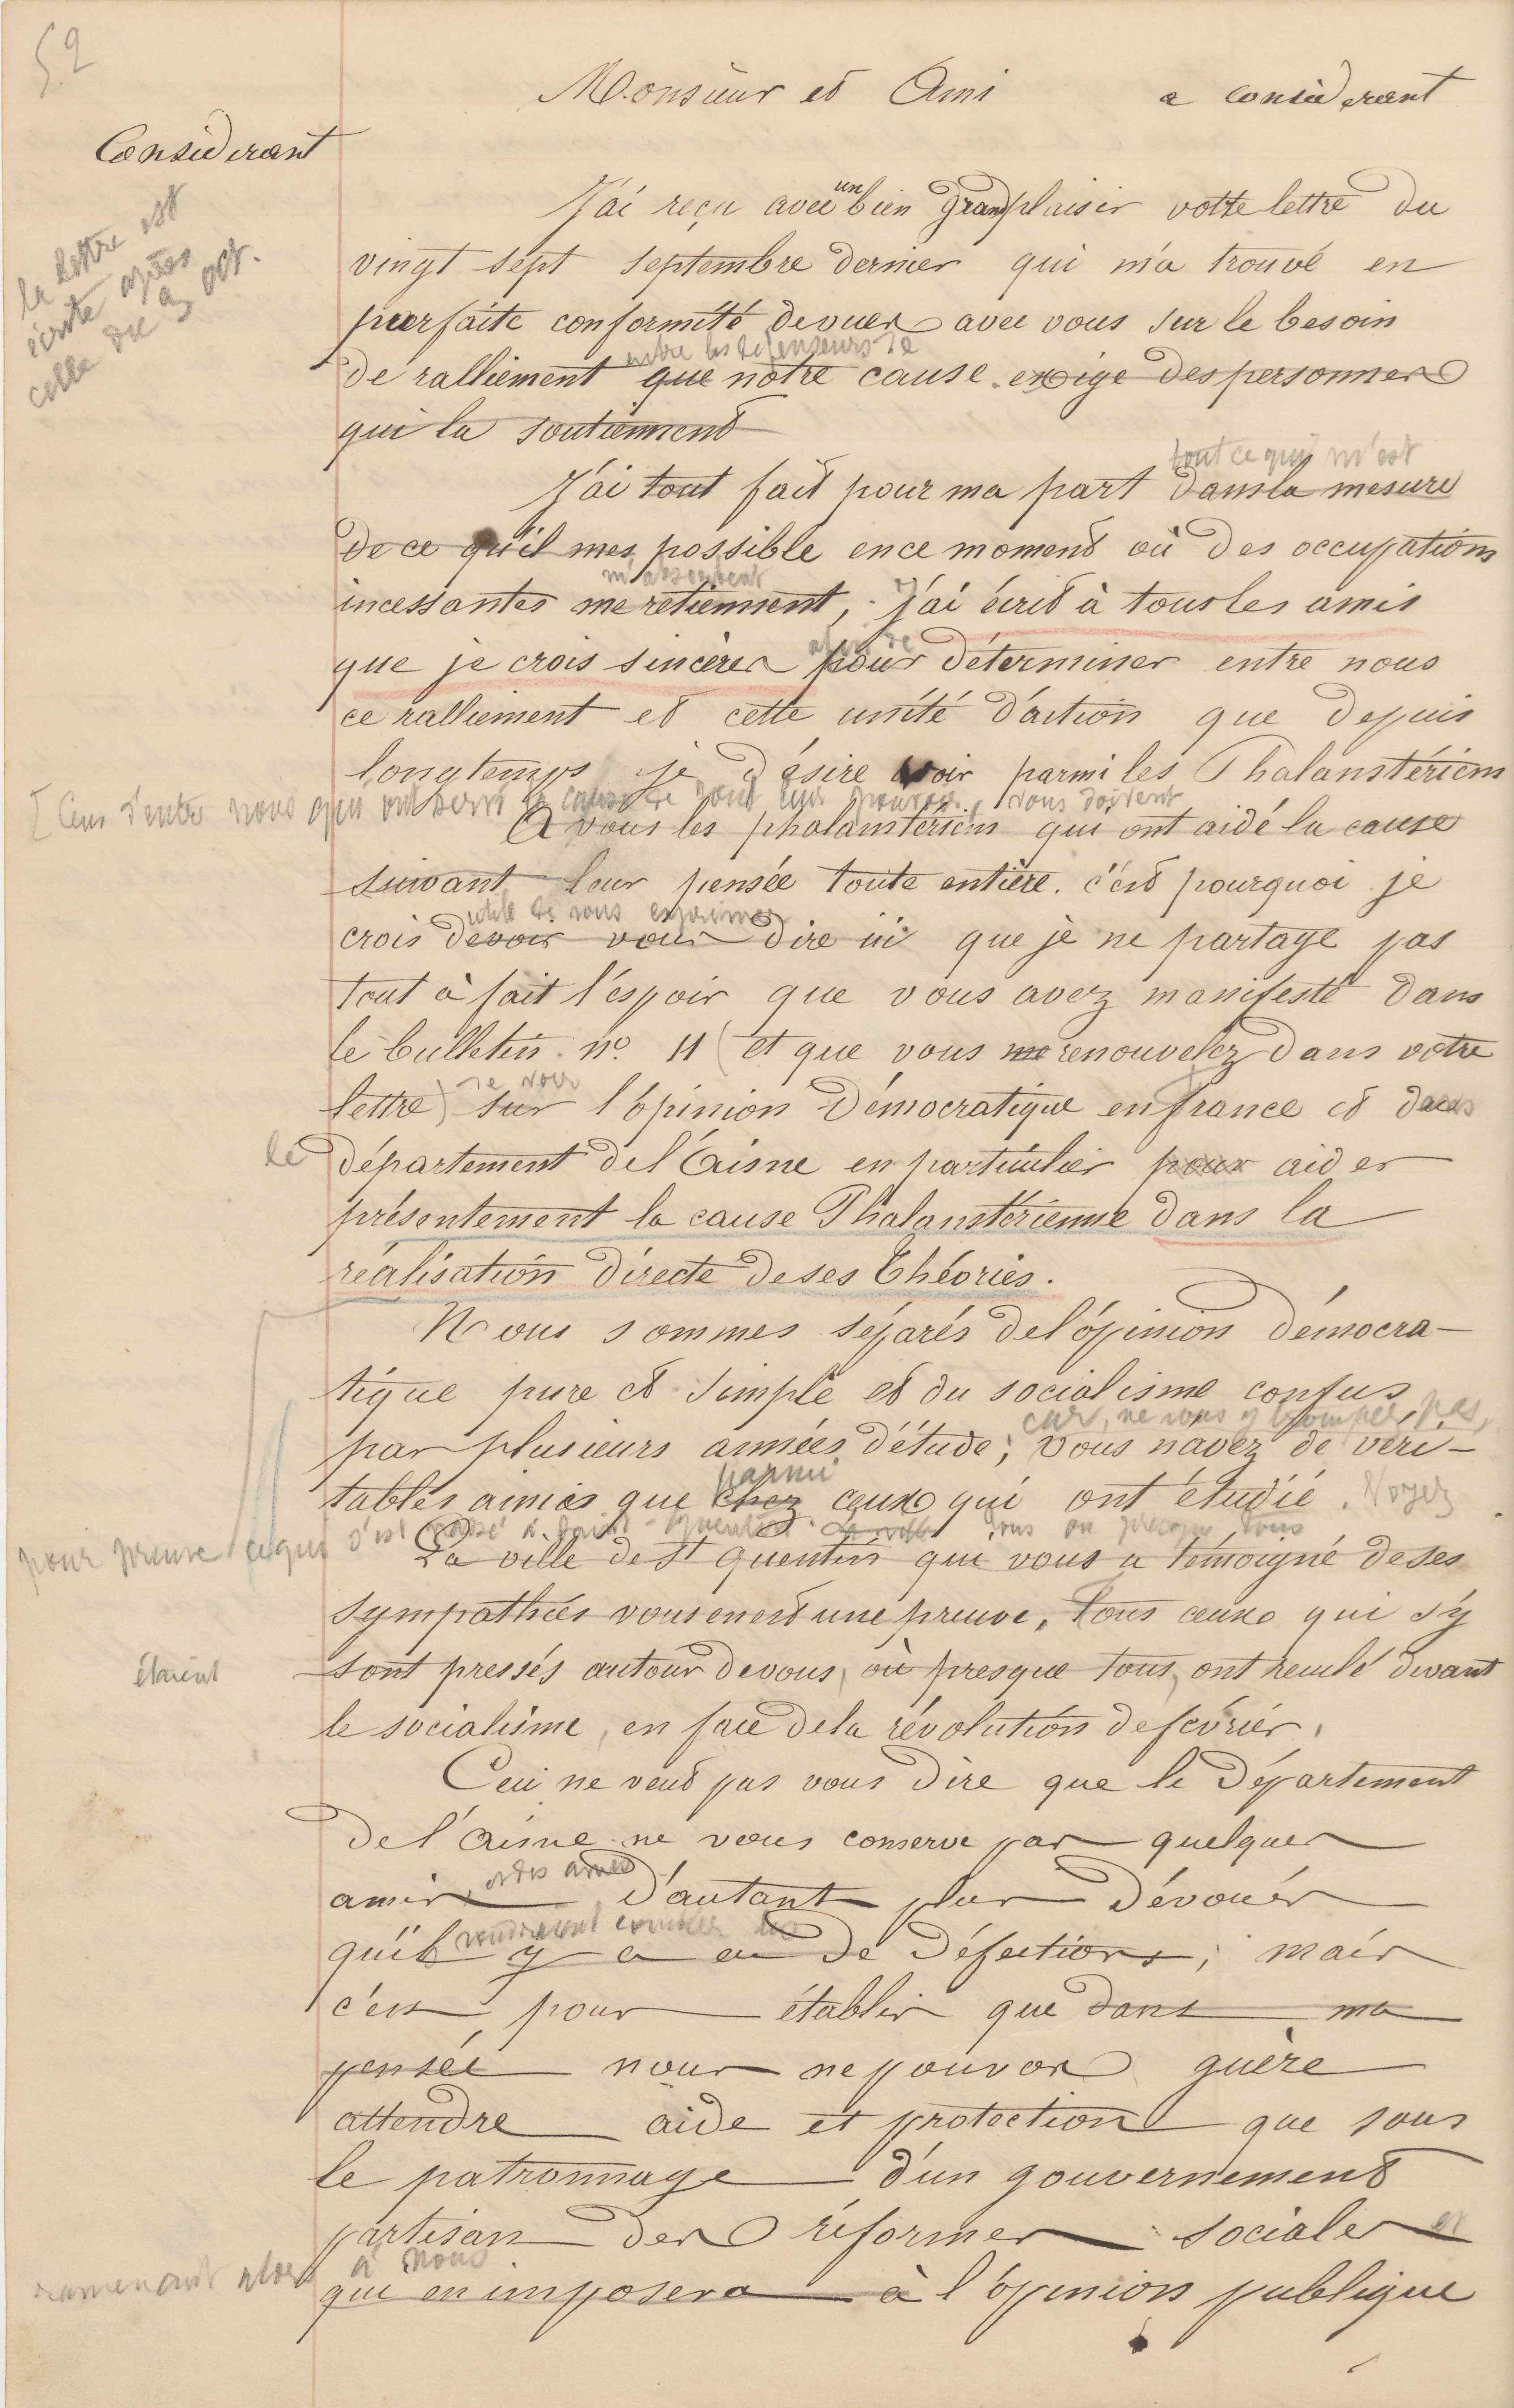 52
Monsieur et Ami
a considerant
Considerant
la lettre est
écrite après
celle du 23 oct.
un
J'ai reçu avec bien grand plaisir votre lettre du
vingt sept septembre dernier qui m'a trouvé en
parfaite conformité de vues avec vous sur le besoin
entre les défenseurs de
de ralliement que notre cause exige des personnes
qui la soutiennent
tout ce qui m'est
J'ai tout fait pour ma part dans la mesure
de ce qu'il mes possible en ce moment où des occupations
m'absorbent
incessantes me retiennent, j'ai écrit à tous les amis
afin de
que je crois sincères pour déterminer entre nous
ce ralliement et cette unité d'action que depuis
longtemps je désire voir parmi les Phalanstériens
[Ceux d'entre nous qui ont servi la cause de tout leur pouvoir, vous doivent
A vous les phalanstériens qui ont aidé la cause
suivant leur pensée toute entière. c'est pourquoi je
utile de vous exprimer
crois devoir vous dire ici que je ne partage pas
tout à fait l'espoir que vous avez manifesté dans
le bulletin n° 11 (et que vous me renouvelez dans votre
de voir
lettre) sur l'opinion démocratique en france et dans
le
département de l'Aisne en particulier pour aider
présentement la cause Phalanstérienne dans la
réalisation directe de ses Théories.
Nous sommes séparés de l'opinion démocra-
tique pure et simple et du socialisme confus
car, ne vous y trompez pas,
par plusieurs années d'étude; vous n'avez de véri-
parmi
tables amies que chez ceux qui ont étudié. Voyez
pour preuve ce qui s'est passé à Saint-Quentin. tous ou presque tous
La ville de St Quentin qui vous a témoigné de ses
sympathies vous en est une preuve, Tous ceux qui s'y
étaient
sont pressés autour de vous, où presque tous, ont reculé devant
le socialisme, en face de la révolution de février.
Ceci ne veut pas vous dire que le Département
de l'aisne ne vous conserve pas quelques
et des amies
amis d'autant plus dévoués
qu'il y a eu de défections; mais
c'est pour établir que dans ma
pensée nous ne pouvons guère
attendre aide et protection que sous
le patronnage d'un gouvernement
partisan des réformes sociales et
ramenant alors à nous
qui en imposera à l'opinion publique